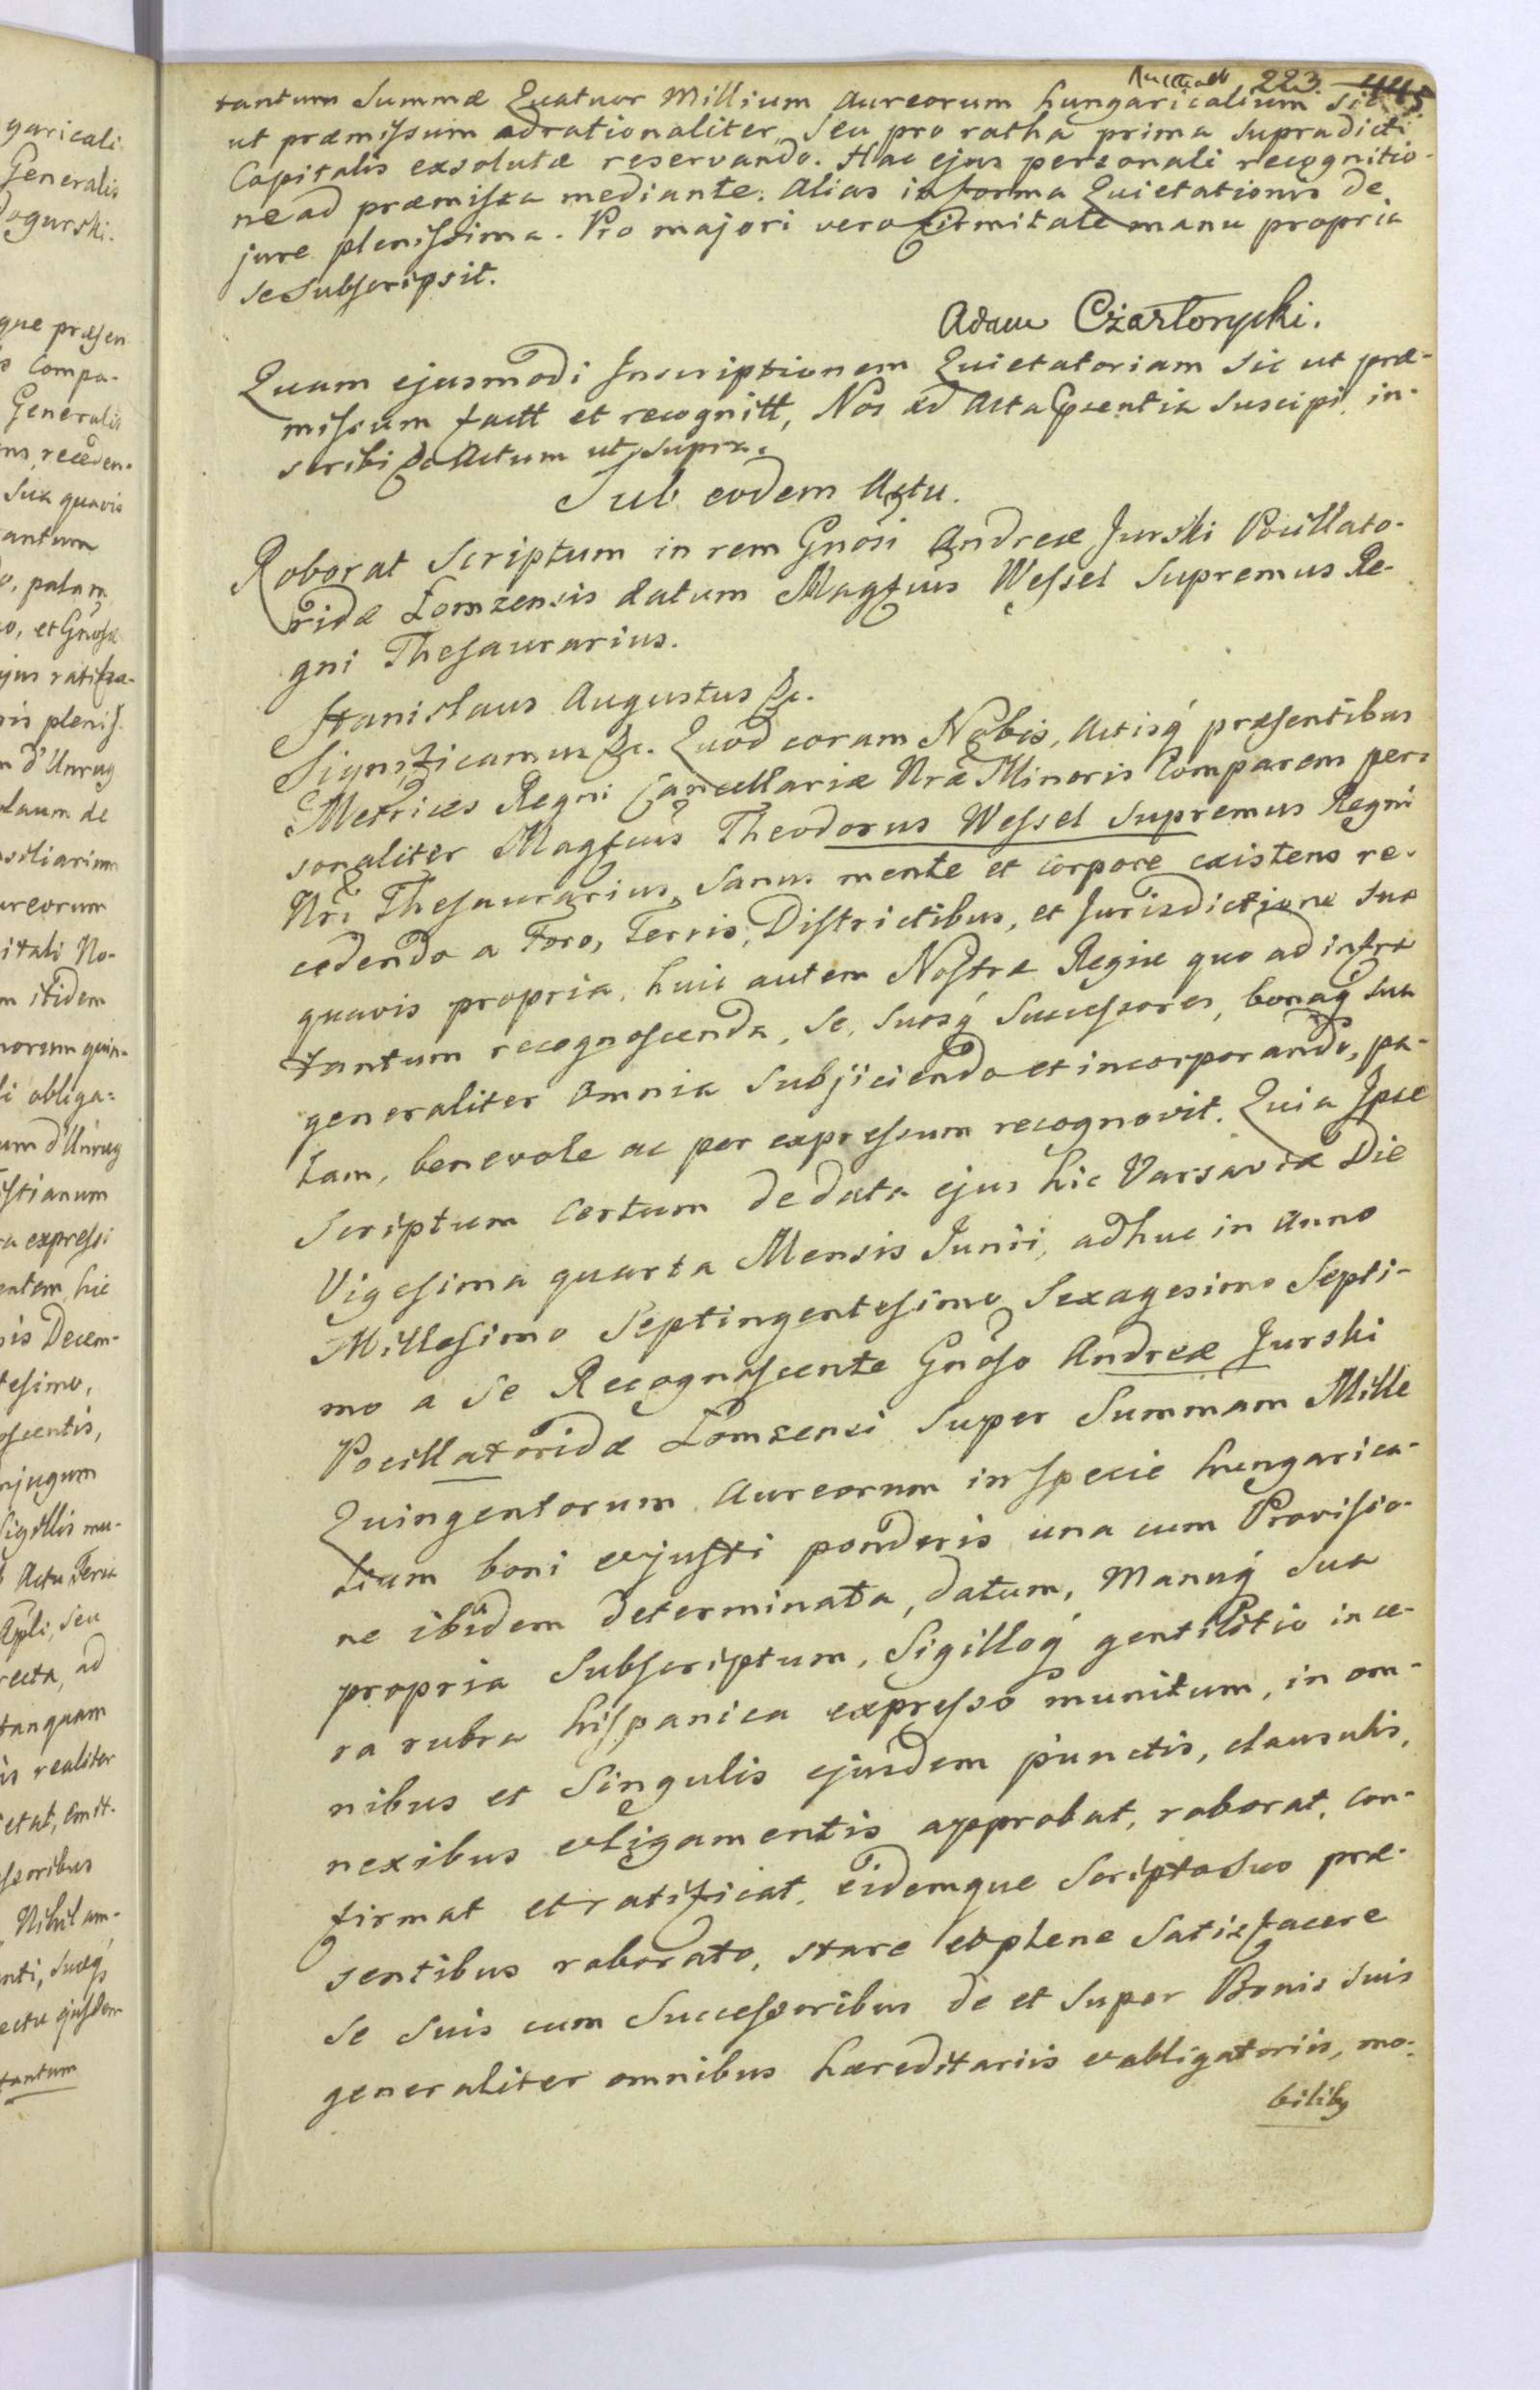 223
tantum Summæ Quatuor Millium Aureorum hungaricalium sit
ut præmissum adrationaliter, seu pro ratha prima supradicti
Capitalis exsolutæ reservando. Hac ejus personali recognitio-
ne ad præmissa mediante. Alias in forma Quietationis de
jure plenissima. Pro majori vero firmitate manu propria
se subscripsit.
Adam Czartoryski.
Quam ejusmodi Inscriptionem Quietatoriam sic ut præ-
missum factt et recognitt, Nos ad Acta pñentia suscipi, in-
scribi &c Actum ut supra.
Sub eodem Actu.
Roborat Scriptum in rem Gnosi Andreæ Jurski Pocillato-
ridæ Lomzensis datum Magfcus Wessel Supremus Re-
gni Thesaurarius.
Stanislaus Augustus &c.
Significamus &c. Quod coram Nobis, Actisq́ præsentibus
Metrices Regni Cancellariæ Nræ Minoris Comparens per-
sonaliter Magfcus Theodorus Wessel Supremus Regni
Nri Thesaurarius, sanus mente et corpore existens re-
cedendo a Foro, Terris, Districtibus, et Jurisdictione sua
quavis propria, huic autem Nostræ Regiæ quo ad infra
tantum recognoscenda, se, suosq́ Successores, bonaq́ sua
generaliter omnia subjiciendo et incorporando, pa-
lam, benevole ac per expressum recognovit. Quia Ipse
Scriptum certum de data ejus hic Varsaviæ Die
Vigesima quarta Mensis Junii, adhuc in Anno
Millesimo Septingentesimo Sexagesimo Septi-
mo a se Recognoscente Gnoso Andreæ Jurski
Pocillatoridæ Lomzensi super Summam Mille
Quingentorum Aureorum in specie hungarica-
lium boni et justi ponderis una cum Provisio-
ne ibidem determinata, datum, Manuq́ sua
propria Subscriptum, Sigilloq́ gentilitio in ce-
ra rubra hispanica expresso munitum, in om-
nibus et singulis ejusdem punctis, clausulis,
nexibus et ligamentis approbat, roborat, con-
firmat et ratificat, eidemque Scripto suo præ-
sentibus roborato, stare et plene satisfacere
se suis cum Successoribus de et super Bonis suis
generaliter omnibus hæreditariis et obligatoriis, mo-
bilibq
garicali
Generalis
dogurski.
que præsen
s Compa-
Generalis
ens, receden-
sua quavis
tantum
o, palam
o, et Gnosa
ejus ratifica-
ris pleniss.
d'Unrug
laum de
nsiliarium
ureorum
itali No-
m itidem
norum quin-
li obliga-
um d'Unrug
istianum
ra expressi
entem, hic
sis Decem-
tesimo,
oscentis,
njugum
Sigillis mu-
Actu Feria
Apli, seu
recta, ad
tanquam
is realiter
ietat, emit-
ssoribus
Nihil am-
nti, suæq́
ectu ejusdem
tantum